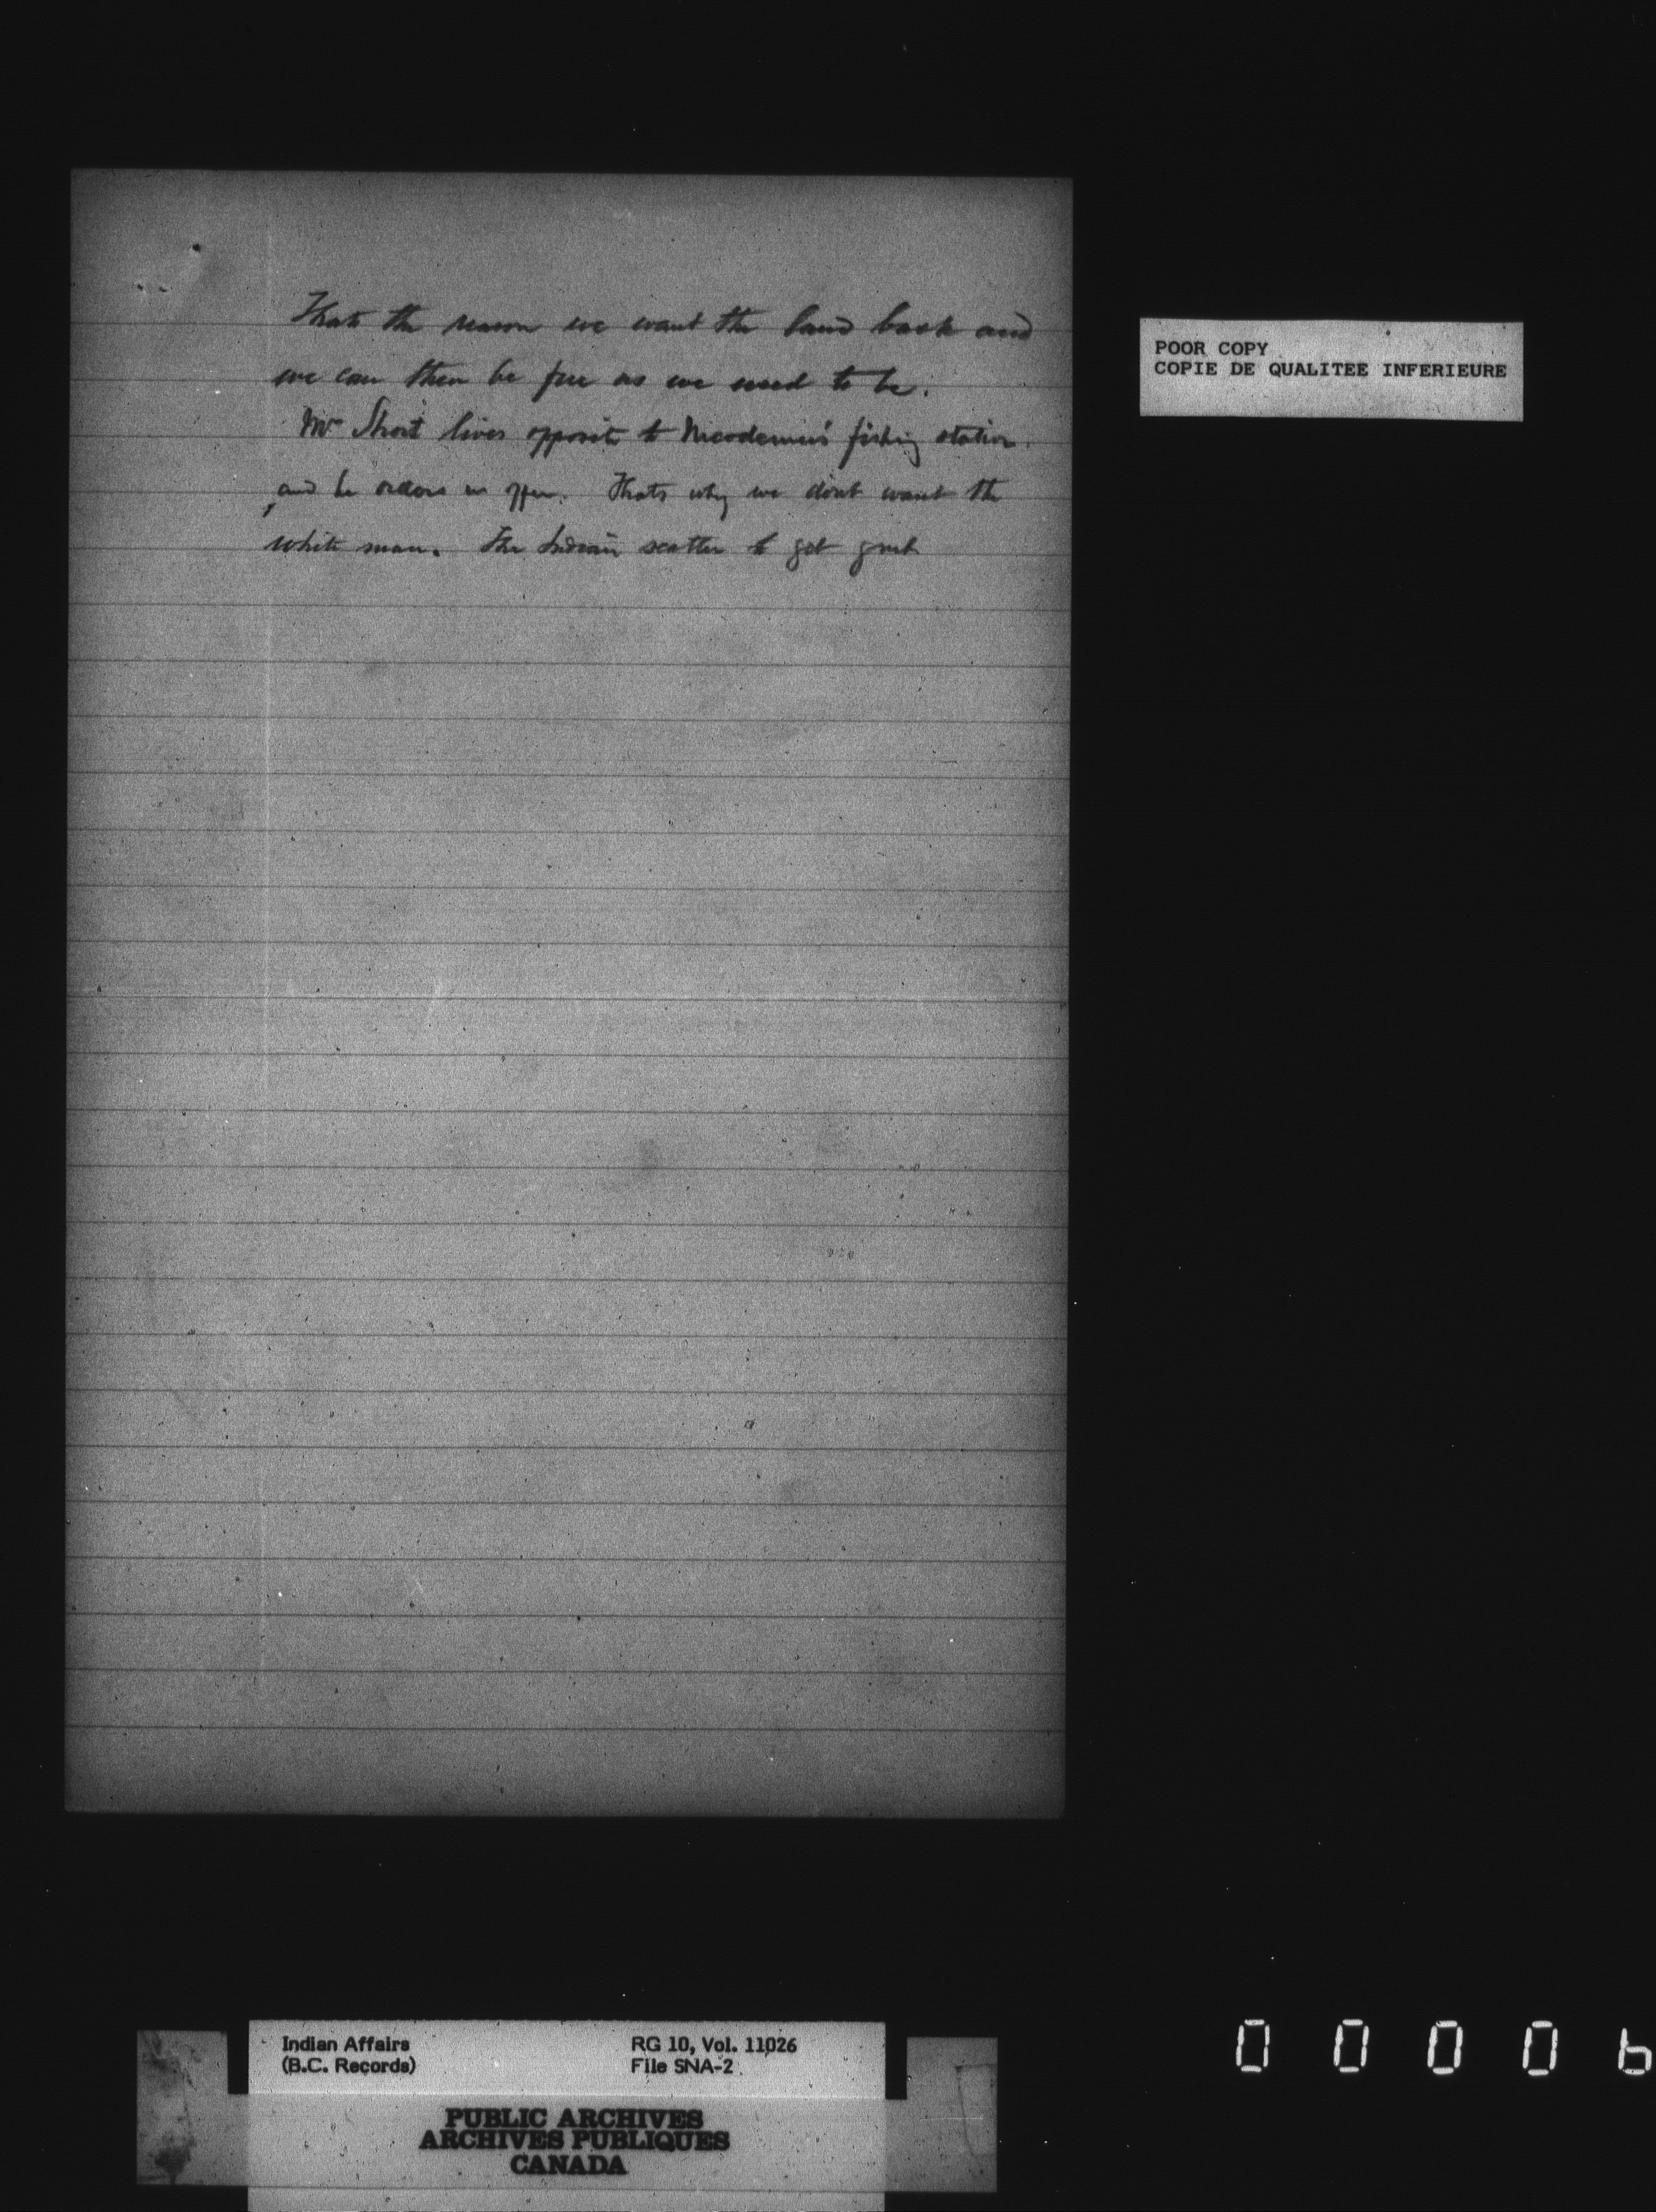 Thats the reason we want the land back and
we can then be free as we used to be.
Mr Short lives opposite to Nicodemus' fishing station.
and he orders us off. Thats why we dont want the
white man. The Indians scatter to get grub
POOR COPY
COPIE DE QUALITEE INFERIEURE
Indian Affairs RG 10, Vol. 11026
(B.C. Records) File SNA-2
PUBLIC ARCHIVES
ARCHIVES PUBLIQUES
CANADA
0 0 0 0 6